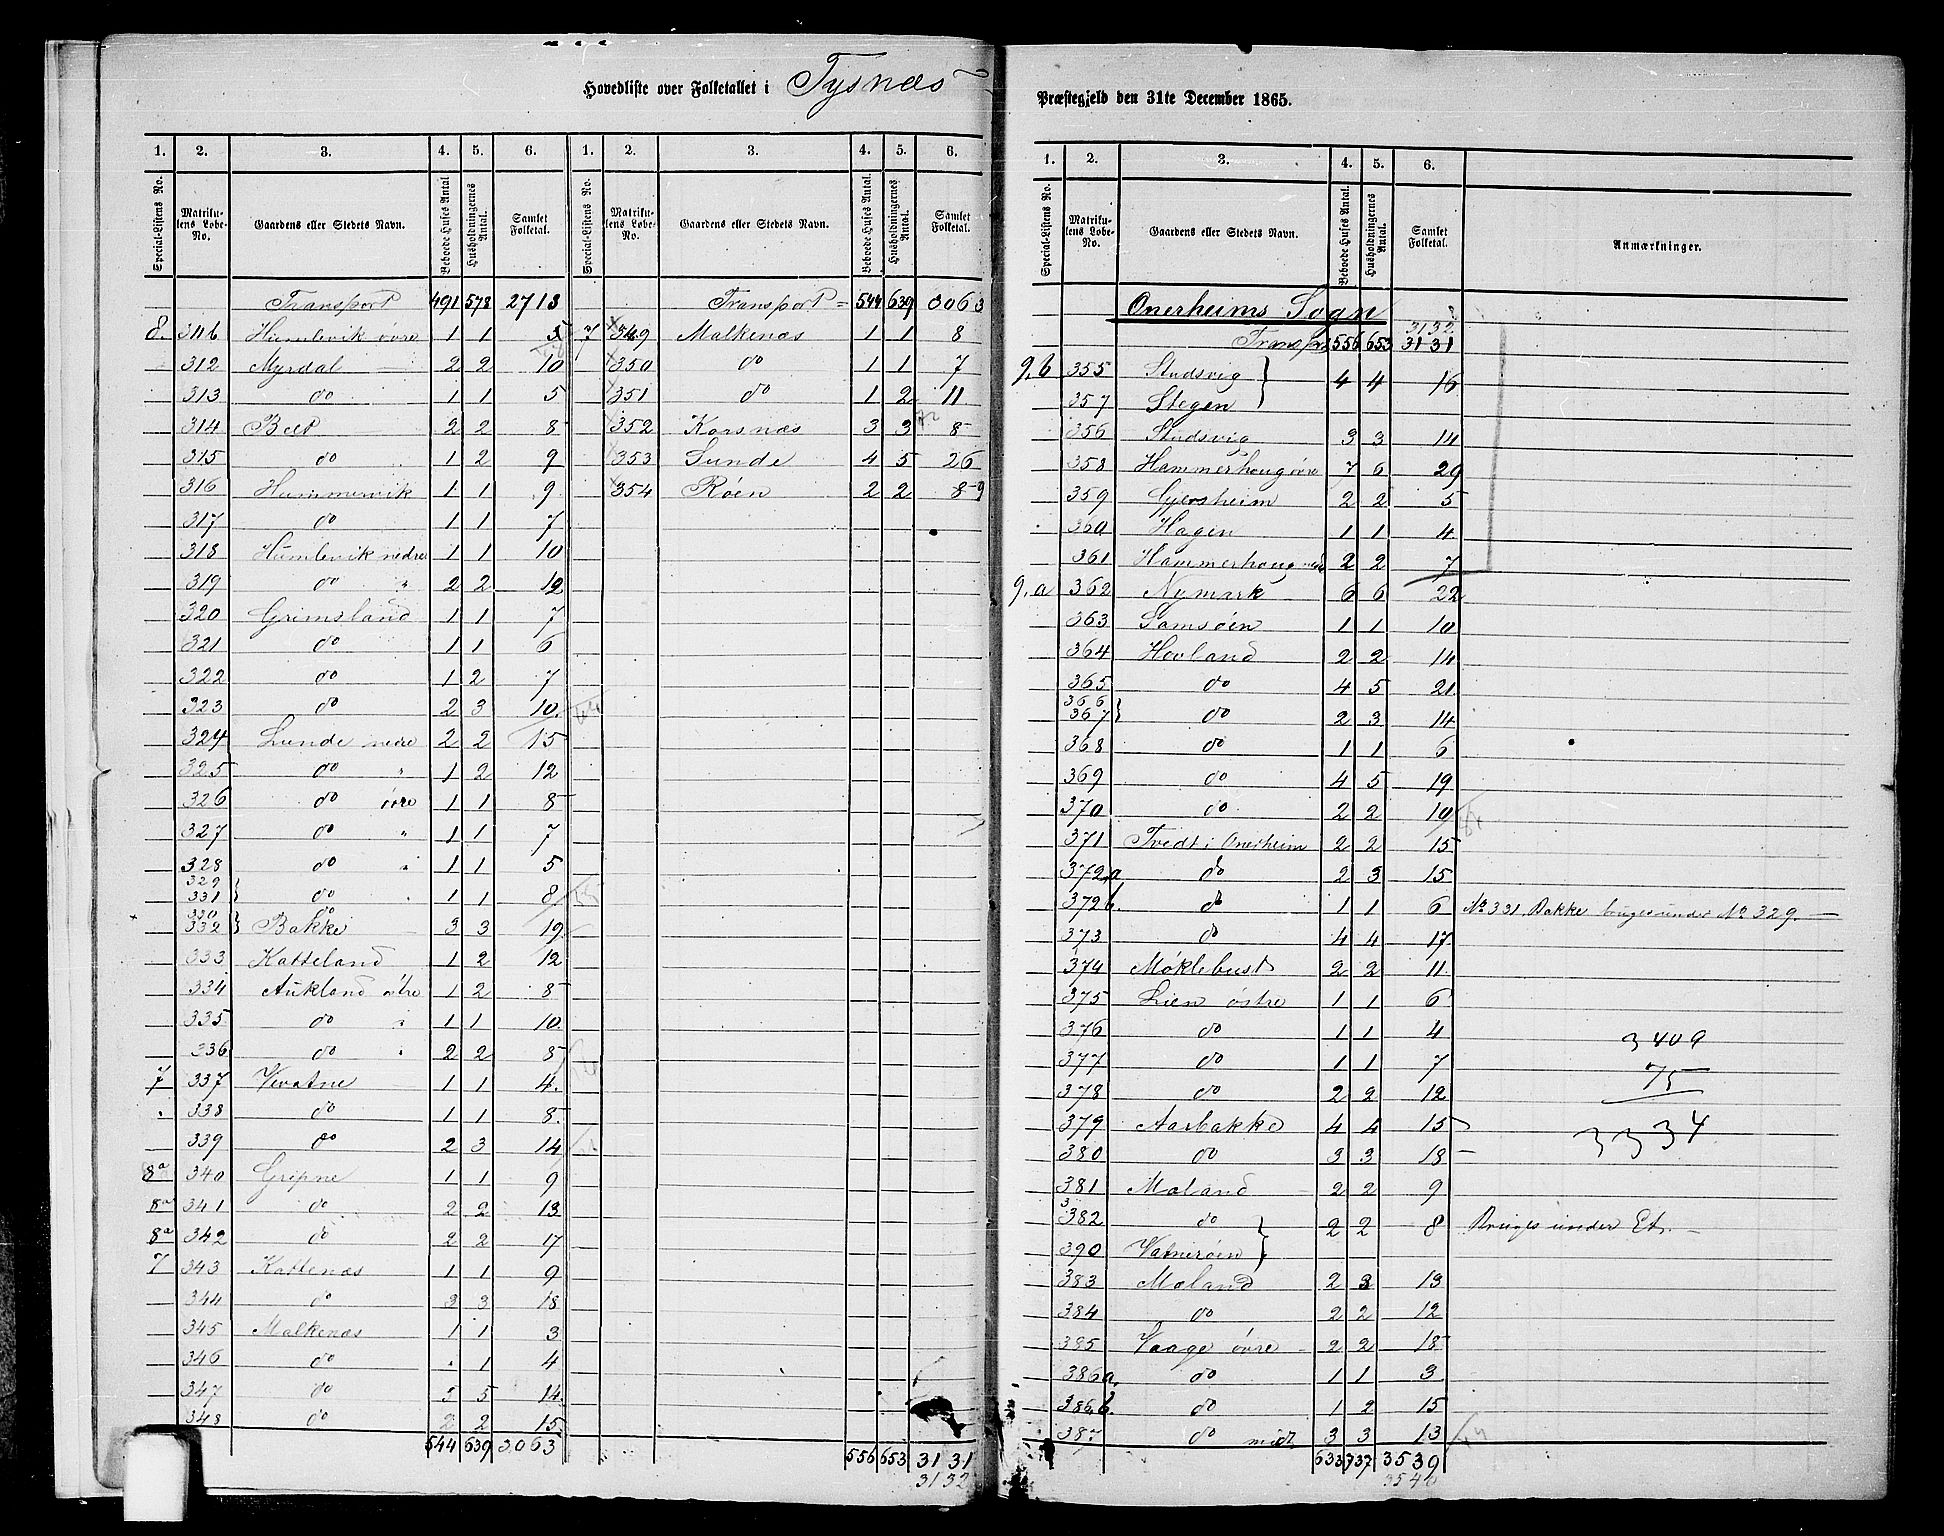 Hovedliste over Folketallet i Tysnæs
Præstegjeld den 31te December 1865.
1. 2. 3. 4. 5. 6. 1. 2. 3. 4. 5. 6.
Special-Listens No. Matrikulens Løbe-No. Gaardens eller Stedets Navn. Beboede Huses Antal Husholdningernes Antal. Samlet Folketal. Special-Listens No. Matrikulens Løbe-No. Gaardens eller Stedets Navn. Beboede Huses Antal. Husholdningernes Antal. Samlet Folketal.
Transport 491 578 2713 Transport = 544 639 3063
8. 311b Humlevik øvre 1 1 5 7 349 Malkenæs 1 1 8
312 Myrdal 2 2 10 350 do 1 1 7
313 do 1 1 5 351 do 1 2 11
314 2 2 8 352 Korsnæs 3 3 8
315 do 1 2 9 353 Sunde 4 5 26
316 Hummervik 1 1 9 354 Røen 2 2 8 9
317 do 1 1 7
318 Humlevik nedre 1 1 10
319 do " 2 2 12
320 Grimsland 1 1 7
321 do 1 1 6
322 do 1 2 7
323 do 2 3 10.
324 Lunde nedre 2 2 15
325 do " 1 2 12
326 do øvre 1 1 8
327 do " 1 1 7
328 do " 1 1 5
329 331 } do 1 1 8
330 332 } do Bakke 3 3 19
333 Katteland 1 2 12
334 Aukland østre 1 2 8
335 do " 1 1 10
336 do " 2 2 8
7 337 Vevatne 1 1 4.
338 do 1 1 8.
339 do 2 3 14
8a 340 Gripne 1 1 9
8a 341 do 2 2 13
8a 342 do 2 2 17
7 343 Kattenæs 1 1 9
344 do 3 3 18
345 Malkenæs 1 1 3
346 do . 1 4
347 do 3 5 14.
348 do 2 2 15
544 639 3063 556 653 3131
3132
1. 2. 3. 4. 5. 6.
Special-Listens No. Matrikulens Løbe-No. Gaardens eller Stedets Navn. Beboede Huses Antal. Husholdningernes Antal. Samlet Folketal. Anmærkninger.
Onerheims Sogn
3132
Transp. 556 653 3131
9,b 355 Studsvig } 4 4 16
357 Stegen
356 Studsvig 3 3 14
358 Hammerhoug øvre 7 6 29
359 Gjersheim 2 2 5
360 Hagen 1 1 4
361 Hammerhoug nedr 2 2 7
9,a 362 Nymark 6 6 22
363 Samsøen 1 1 10
364 Hovland 2 2 14
365 do 4 5 21
366 367 } do 2 3 14
368 do 1 1 6
369 do 4 5 19
370 do. 2 2 10
371 Tvedt i Onerheim 2 2 15
372a do 2 3 15
372b. do 1 1 6 No 331 Bakke bruges under No 329.
373 do 4 4 17
374 Møklebust 2 2 11
375 Lien østre 1 1 6
376 do 1 1 4 3409
377 do 1 1 7 75
378 do 2 2 12
379 Aarbakke 4 4 15 3334
380 do 3 3 18
381 Moland 2 2 9
382 do } 2 2 8 Bruges under Et.
390 Vatnerøen
383 Moland 2 3 13
384 do 2 2 12
385 Vaage øvre 2 2 18
386a. do 1 1 3
386,b. do 1 2 15
387 do midt 3 3 13
633 737 3539
3540